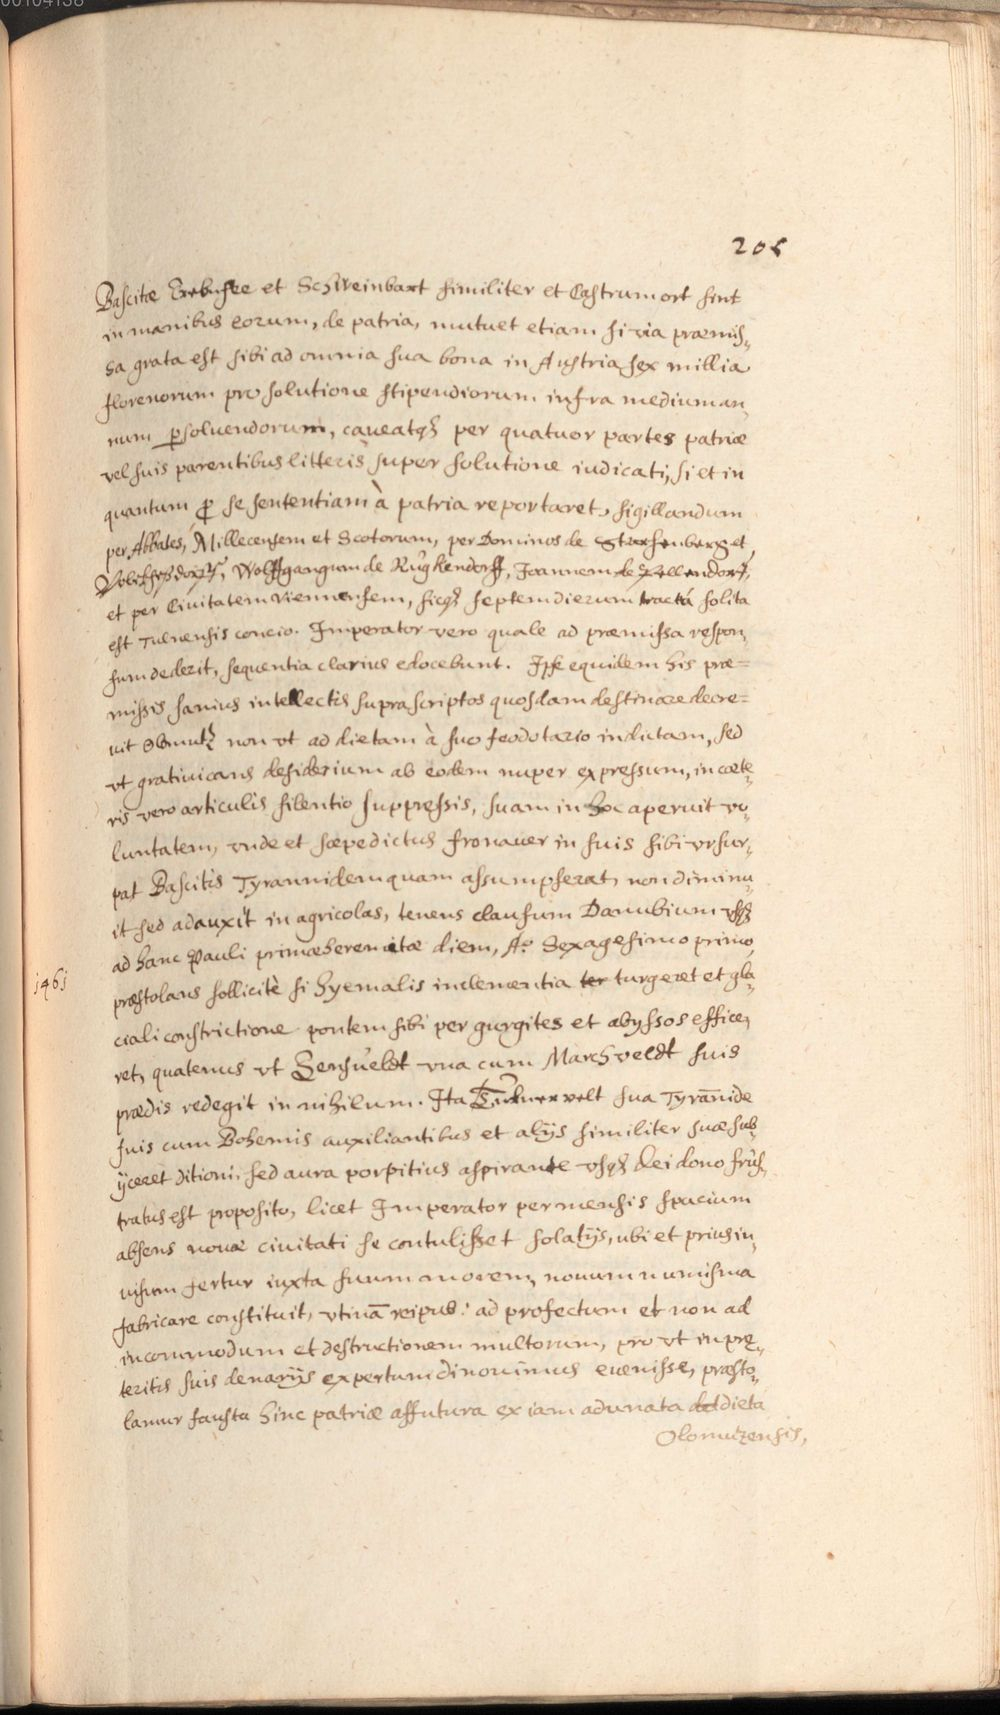 205
Bascitæ Trebensee et Schweinbart similiter et Castrum ort sint
in manibus eorum, de patria, mutuet etiam si via præmis„
sa grata est sibi ad omnia sua bona in Austria sex millia
florenorum pro solutione stipendiorum infra medium an„
num psoluendorum, caueatqz per quatuor partes patriæ
vel suis parentibus litteris super solutione iudicati, si et in
quantum p se sententiam à patria reportaret, sigillandum
per Abbates, Millecensem et Scotorum, per Dominos de Starhenberg et
Wolffgangum de Rugkendorff, Joannem de
et per Ciuitatem viennensem, sicqz septem dierum tracta solita
est Tulnensis concio. Imperator vero quale ad præmissa respon„
sum dederit, sequentia clarius edocebunt. Ipse equidem his præ=
missis sanius intellectis suprascriptos quosdam destinare decre=
uit Olmutz non vt ad dietam à suo feodotario indictam, sed
vt gratiuicans desiderium ab eodem nuper expressum, in cæte„
ris vero articulis silentio suppressis, suam in hoc aperuit vo„
luntatem, vnde et sæpedictus fronauer in suis sibi vsur„
pat Bascitis Tyrannidem quam assumpserat, non diminu„
it sed adauxit in agricolas, tenens clausum Danubium vsqz
ad hanc Pauli primæheremitæ diem, Ao Sexagesimo primo
1461
præstolans sollicitè si hyemalis inclementia ter turgeret et gla„
ciali constrictione pontem sibi per gurgites et abyssos effice„
ret, quatenus vt Gensueldt vna cum Marchveldt suis
prædis redegit in nihilum. Ita Tulnervelt sua Tyrannide
suis cum Bohemis auxiliantibus et alijs similiter suæ sub„
ijceret ditioni, sed aura porpitius aspirante vsqz dei dono frus„
tratus est proposito, licet Imperator per mensis spacium
absens nouæ ciuitati se contulisset solatijs, ubi et prius in„
uisum fertur iuxta suum morem, nouum numisma
fabricare constituit, vtinā reipub: ad profectum et non ad
incommodum et destructionem multorum, pro vt in præ„
teritis suis denarijs expertum dinoscimus euenisse, præsto„
lamur fausta hinc patriæ affutura ex iam adunata dieta
Olomutzensis,